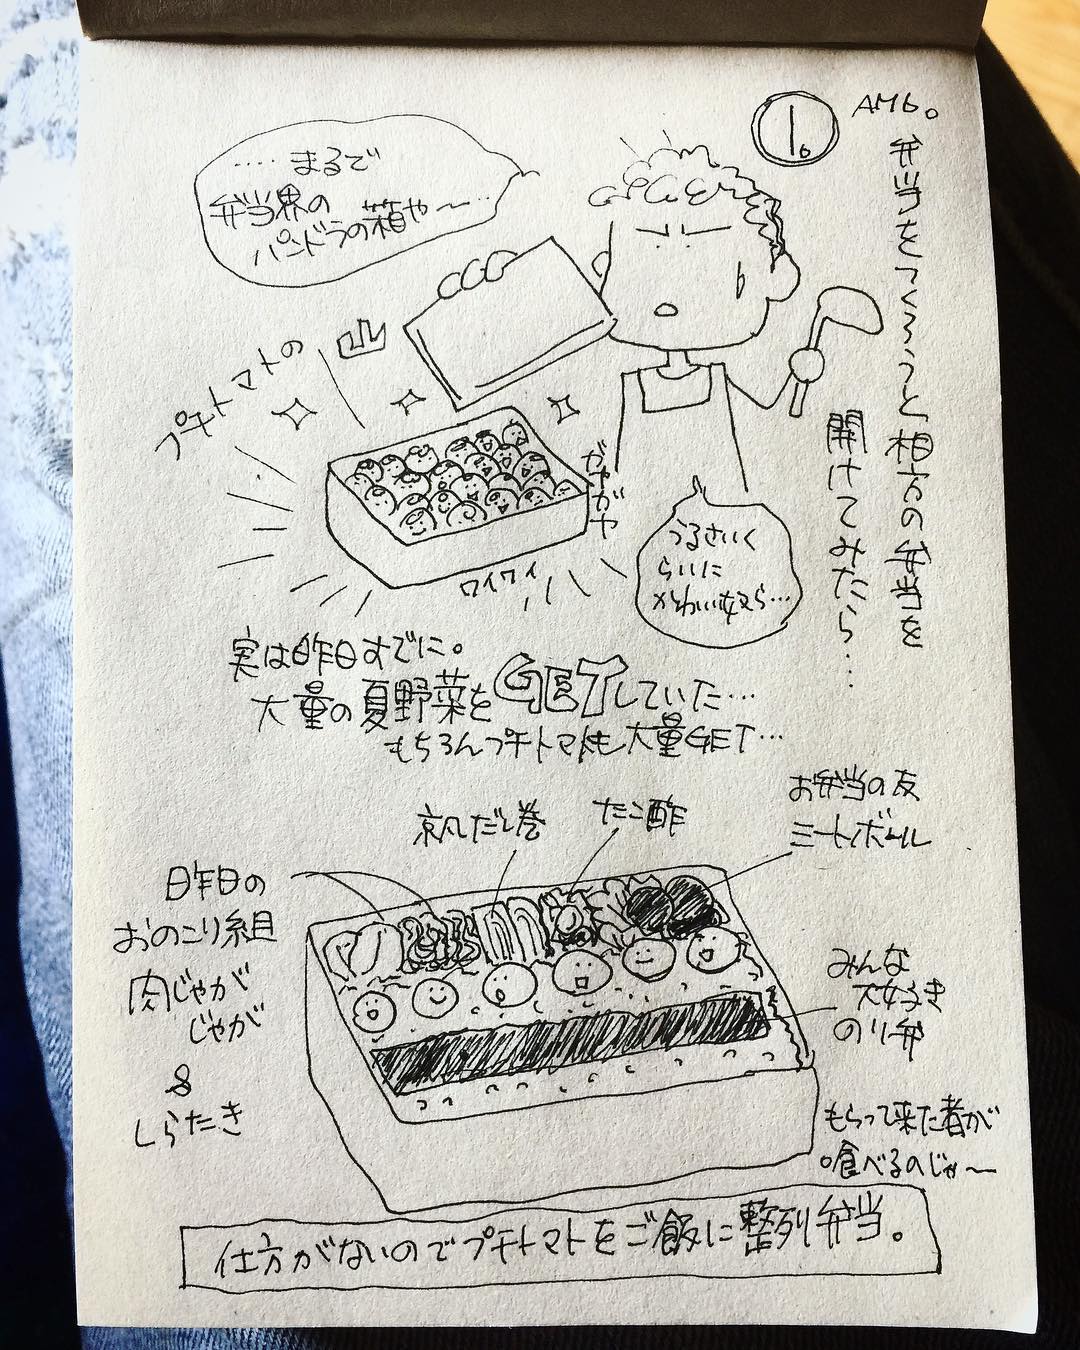 1。
AM6。
弁当をつくろうと相方の弁当を
開けてみたら…
……まるで
弁当界の
パンドラの箱や〜…
プチトマトの
山
ガヤガヤ
ワイワイ
うるさいく
らいに
かわいい奴ら…
実は昨日すでに。
大量の夏野菜をGETしていた…
もちろんプチトマトも大量GET…
お弁当の友
ミートボール
たこ酢
京風だし巻
昨日の
おのこり組
肉じゃが
じゃが
&
しらたき
みんな
大好き
のり弁
もらって来た者が
食べるのじゃ〜
仕方がないのでプチトマトをご飯に整列弁当。